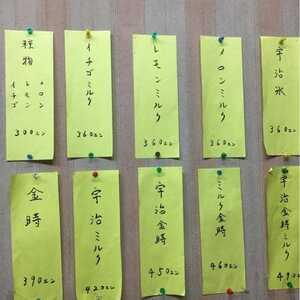 種物
メロン
レモン
イチゴ
300エン
イチゴミルク
360エン
レモンミルク
360エン
メロンミルク
360エン
宇治氷
360エン
金時
390エン
宇治ミルク
420エン
宇治金時
450エン
ミルク金時
460エン
宇治金時ミルク
490エン